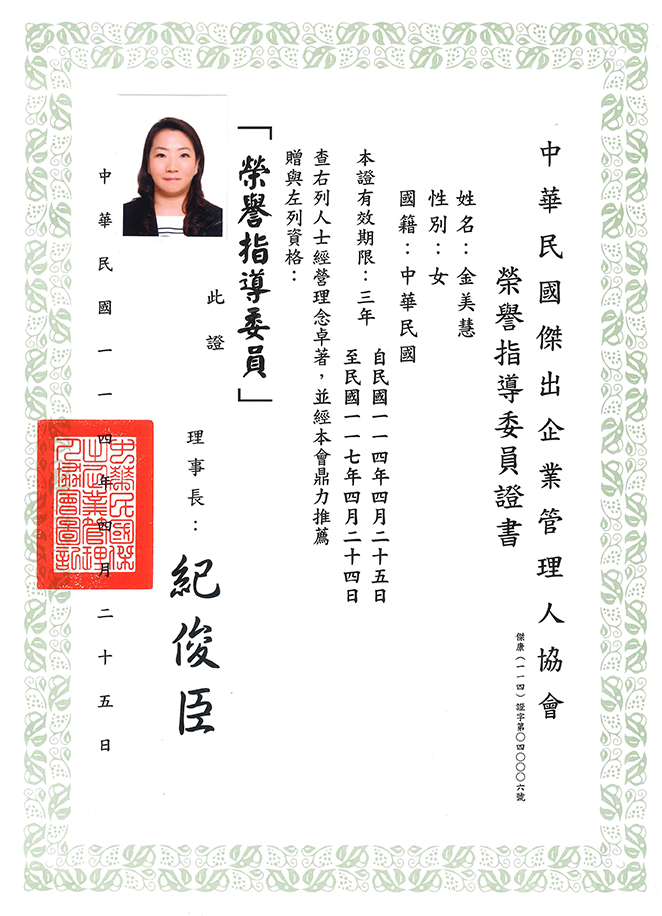 中華民國傑出企業管理人協會
榮譽指導委員證書
傑康（一一四）證字第〇四〇〇〇六號
姓名：金美慧
性別：女
國籍：中華民國
本證有效期限：三年
自民國一一四年四月二十五日
至民國一一七年四月二十四日
查右列人士經營理念卓著，並經本會鼎力推薦
贈與左列資格：
「榮譽指導委員」
此證
理事長：紀俊臣
中華民國一一四年四月二十五日
中華民國傑
出企業管理
人協會圖記